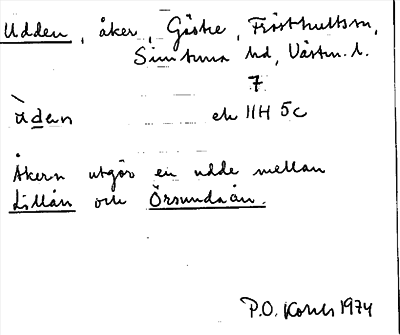 Udden, åker, Gäske, Frösthults sn,
Simtuna hd, Västm. l.
7
ùden ek 11H 5c
Åkern utgör en udde mellan
Lillån och Örsundaån.
P.O. 1974